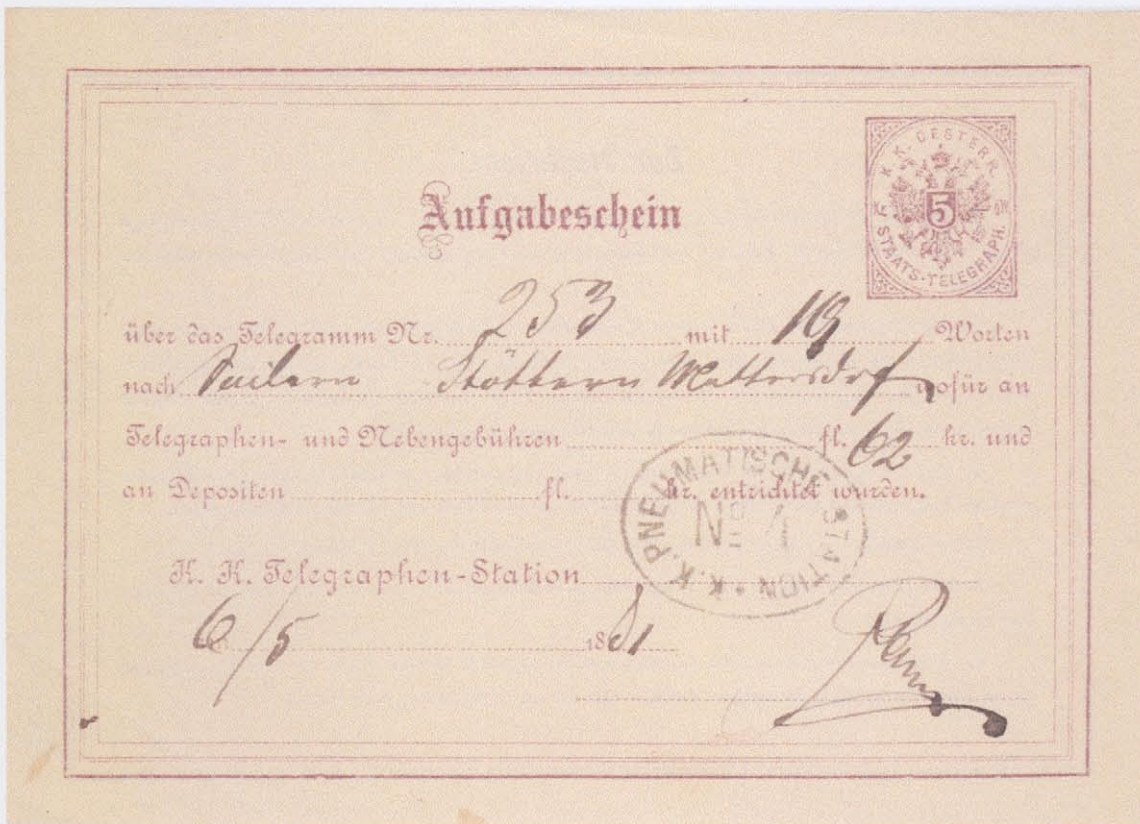 K. K. OESTERR.
5
STAATS-TELEGRAPH.
Aufgabeschein
über das Telegramm Nr. 253 mit 19 Worten
nach Stöttern Mattersdorf wofür an
Telegraphen- und Nebengebühren fl. 62 kr. und
an Depositen fl. kr. entrichtet wurden.
K. K. PNEUMATISCHE STATION
No 4
K. K. Telegraphen-Station
6/5 1881